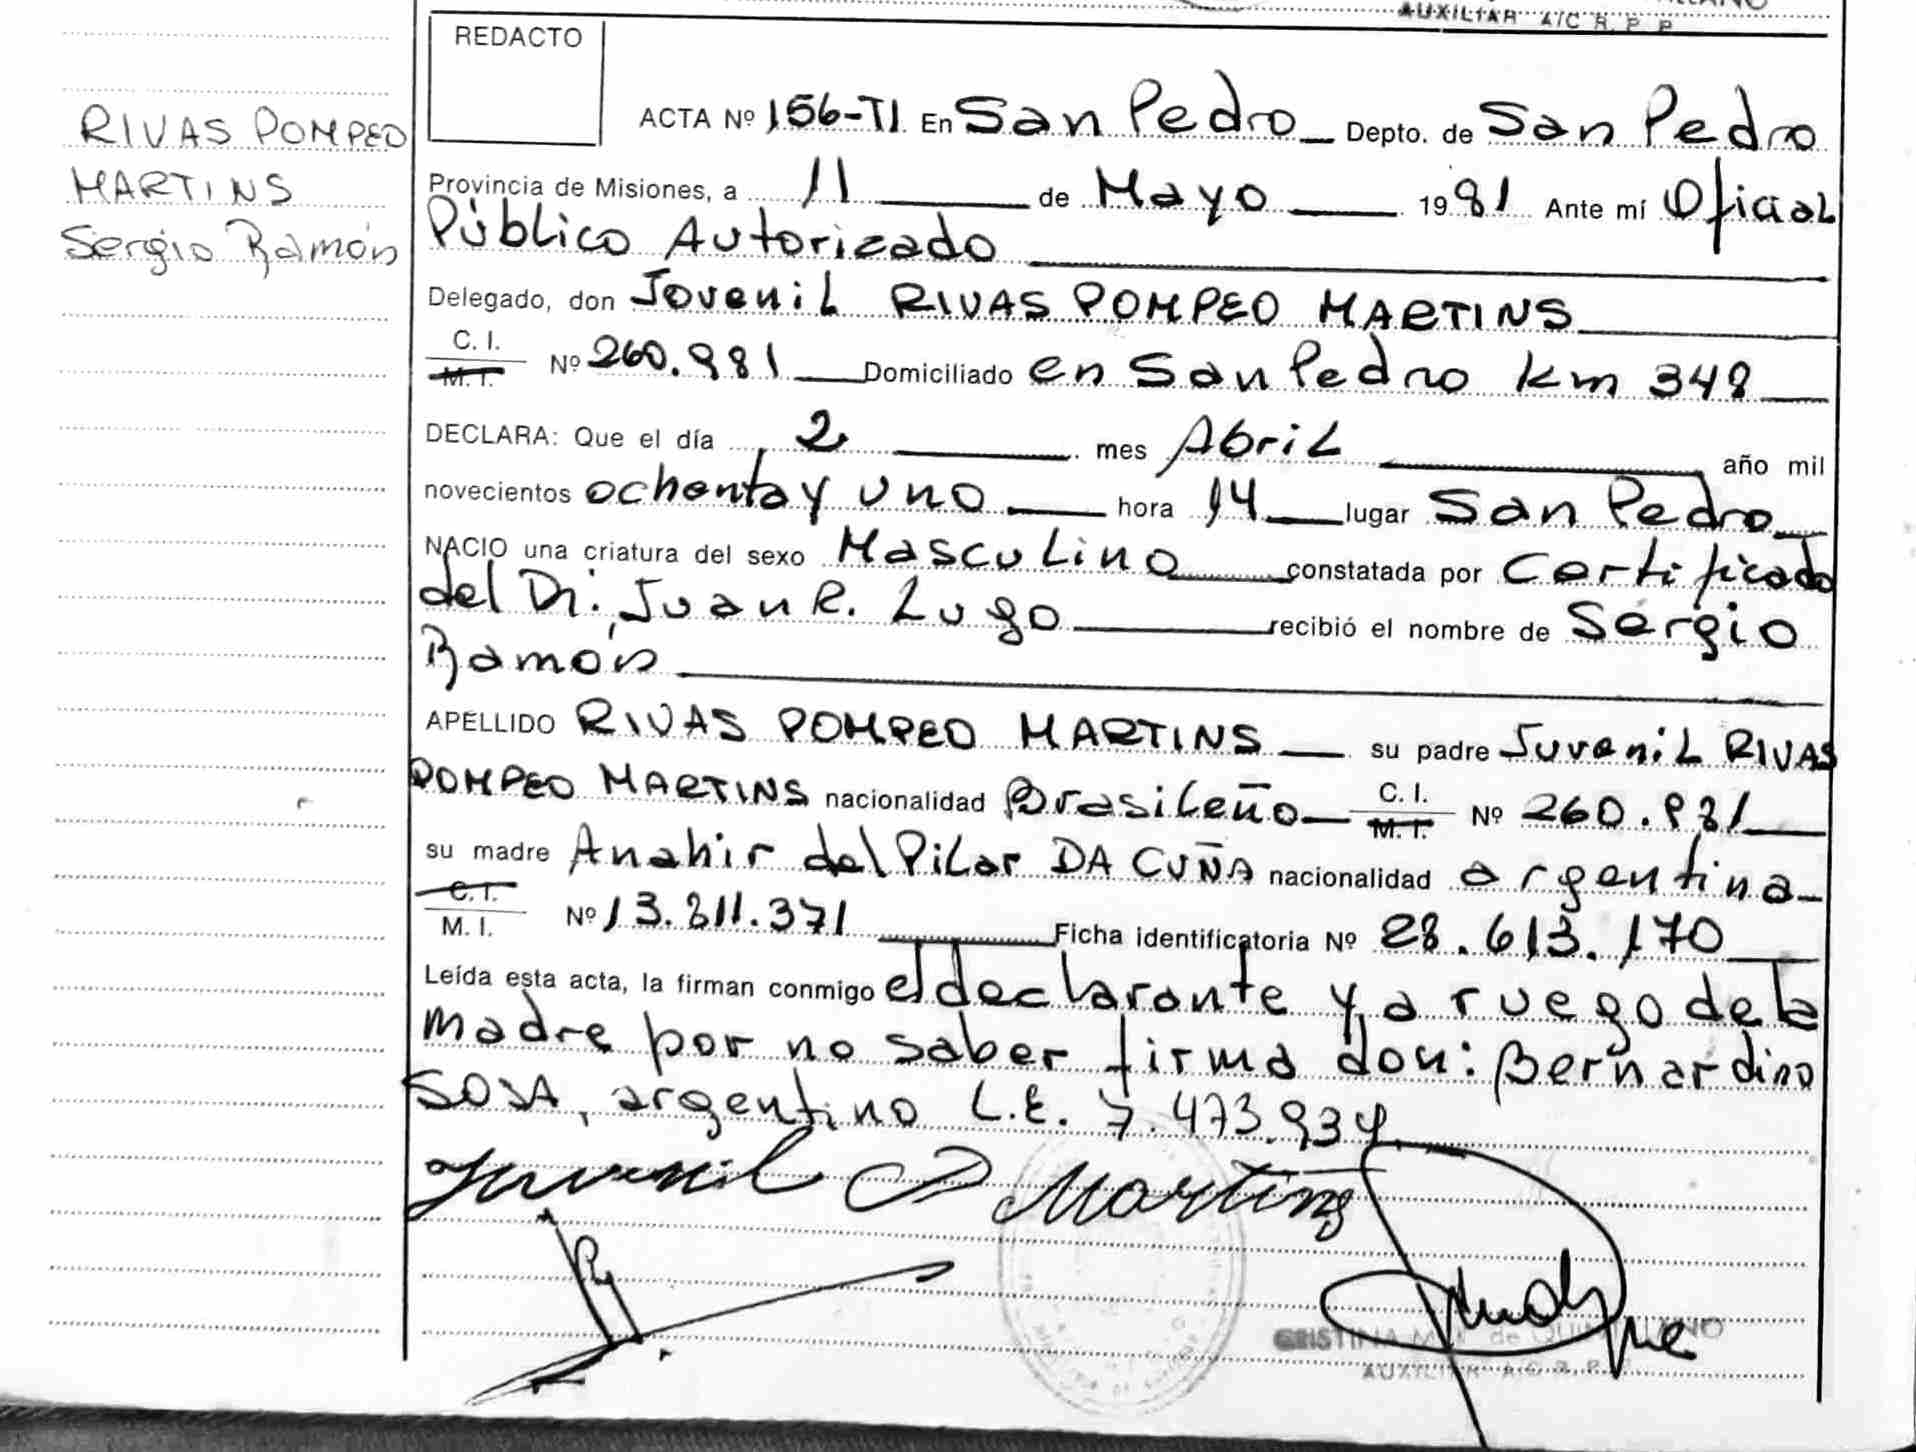 AUXILIAR A/C R. P. P.
REDACTO
RIVAS POMPEO
MARTINS
Sergio Ramón
ACTA Nº 156-TI En San Pedro Depto. de San Pedro
Provincia de Misiones, a 11 de Mayo 1981 Ante mí Oficial
Público Autorizado
Delegado, don Jovenil RIVAS POMPEO MARTINS
C. I.
M. I. Nº 260.981 Domiciliado en San Pedro Km 348
DECLARA: Que el día 2 mes Abril año mil
novecientos ochenta y uno hora 14 lugar San Pedro
NACIO una criatura del sexo Masculino constatada por Certificado
del Dr. Juan R. Lugo recibió el nombre de Sergio
Ramón
APELLIDO RIVAS POMPEO MARTINS su padre Juvenil RIVAS
POMPEO MARTINS nacionalidad Brasileño C. I.
M. I. Nº 260.981
su madre Anahir del Pilar DA CUÑA nacionalidad argentina
C. I.
M. I. Nº 13.811.371 Ficha identificatoria Nº 28.613.170
Leída esta acta, la firman conmigo el declarante y a ruego de la
madre por no saber firma don: Bernardino
SOSA, argentino L.E. 7.473.934
Juvenil P Martins
CRISTINA M. de
AUXILIAR A/C R. P. P.